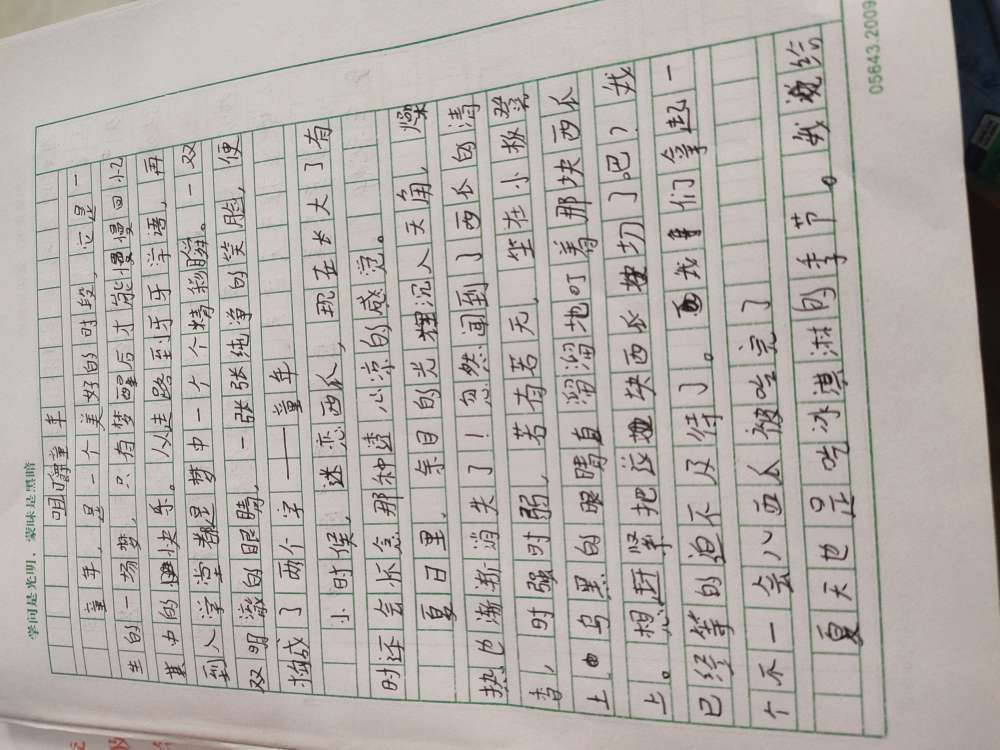 学问是光明，蒙昧是黑暗
咀嚼童年
童年，是一个美好的时段，它是一
生的一场梦，只有梦醒后才能慢慢回忆
其中的快乐。从走路到牙牙学语，再
到入学堂都是梦中一个个精彩瞬。一双
双明澈的眼睛，一张张纯净的笑脸，便
构成了两个字——童年
小时候，迷恋西瓜，现在长大了有
时还会怀念那种透心凉的感觉。
夏日里，余日的光辉沉入天角，燥
热也渐渐消失了！忽然闻到了西瓜的清
香，时强时弱，若有若无，坐在小板凳
上，乌黑的眼睛直溜溜地盯着那块西瓜
上。想赶紧把这块西瓜切了吧？我
已经等的迫不及待了。我们拿起一
个不一会儿西瓜被吃完了
夏天也是吃冰淇淋的季节。我说给
05643.2009